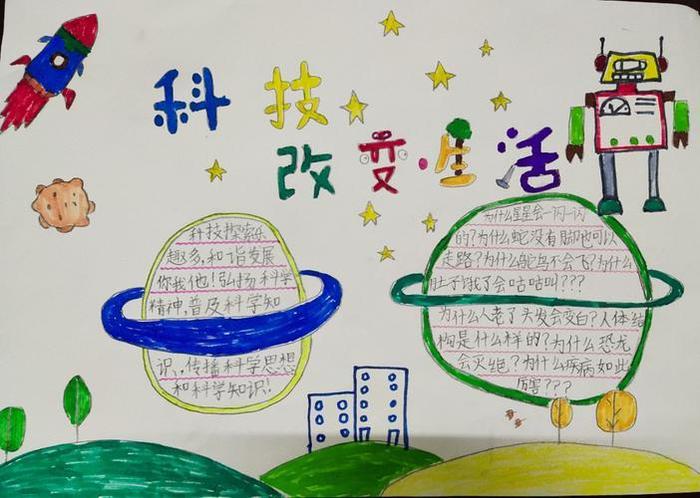 科技
改变生活
科技探索乐
趣多,和谐发展
你我他!弘扬科学
精神,普及科学知
识,传播科学思想
和科学知识!
为什么星星会一闪一闪
的?为什么蛇没有脚也可以
走路?为什么鸵鸟不会飞?为什么
肚子饿了会咕咕叫???
为什么人老了头发会变白?人体结
构是什么样的?为什么恐龙
会灭绝?为什么疾病如此
厉害???